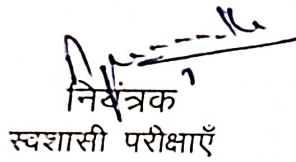 नियंत्रक
स्वशासी परीक्षाएँ